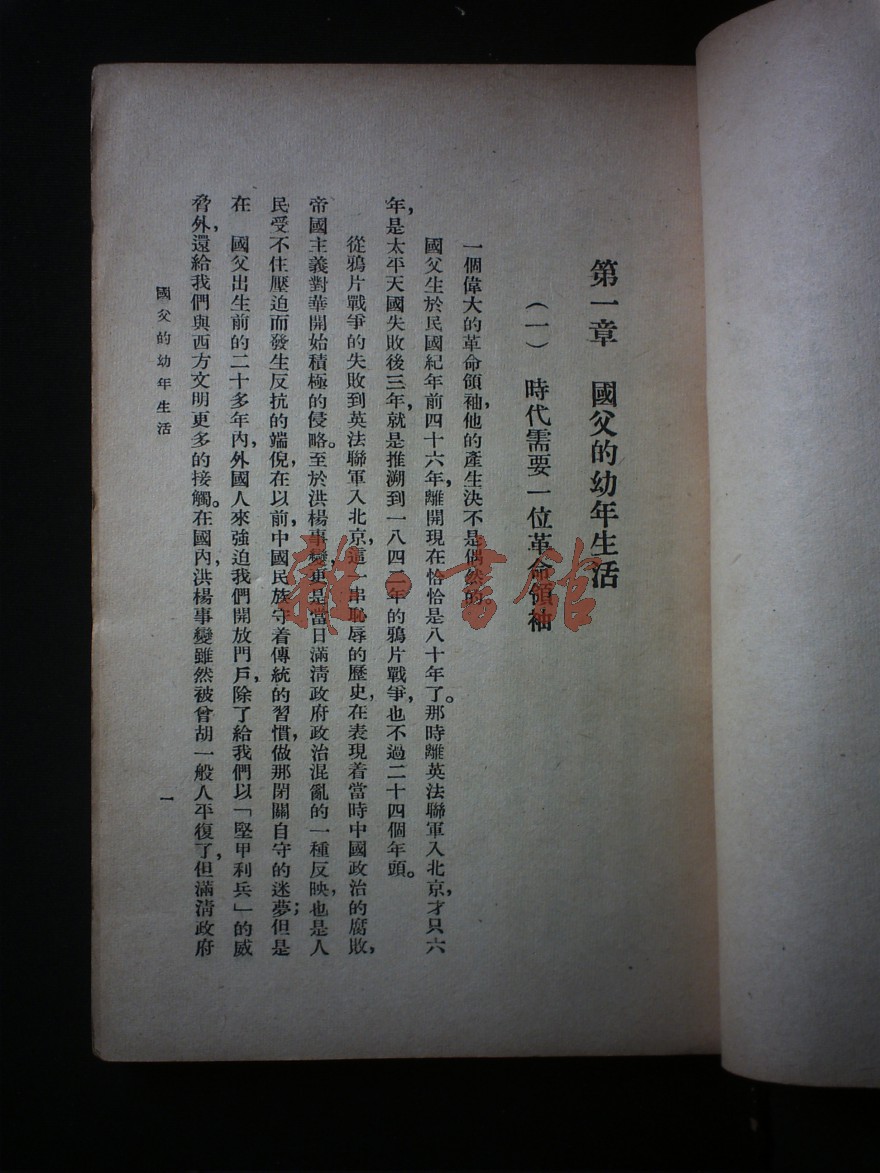 第一章　國父的幼年生活
（一）　時代需要一位革命領袖
一個偉大的革命領袖，他的產生決不是偶然的。
國父生於民國紀年前四十六年，離開現在恰恰是八十年了。那時離英法聯軍入北京，才只六
年，是太平天國失敗後三年，就是推溯到一八四二年的鴉片戰爭，也不過二十四個年頭。
從鴉片戰爭的失敗到英法聯軍入北京，這一串恥辱的歷史，在表現着當時中國政治的腐敗，
帝國主義對華開始積極的侵略。至於洪楊事變，更是當日滿清政府政治混亂的一種反映，也是人
民受不住壓迫而發生反抗的端倪，在以前，中國民族守着傳統的習慣，做那閉關自守的迷夢；但是
在　國父出生前的二十多年內，外國人來強迫我們開放門戶，除了給我們以「堅甲利兵」的威
脅外，還給我們與西方文明更多的接觸。在國內，洪楊事變雖然被曾胡一般人平復了，但滿清政府
國父的幼年生活
一
雜·書館